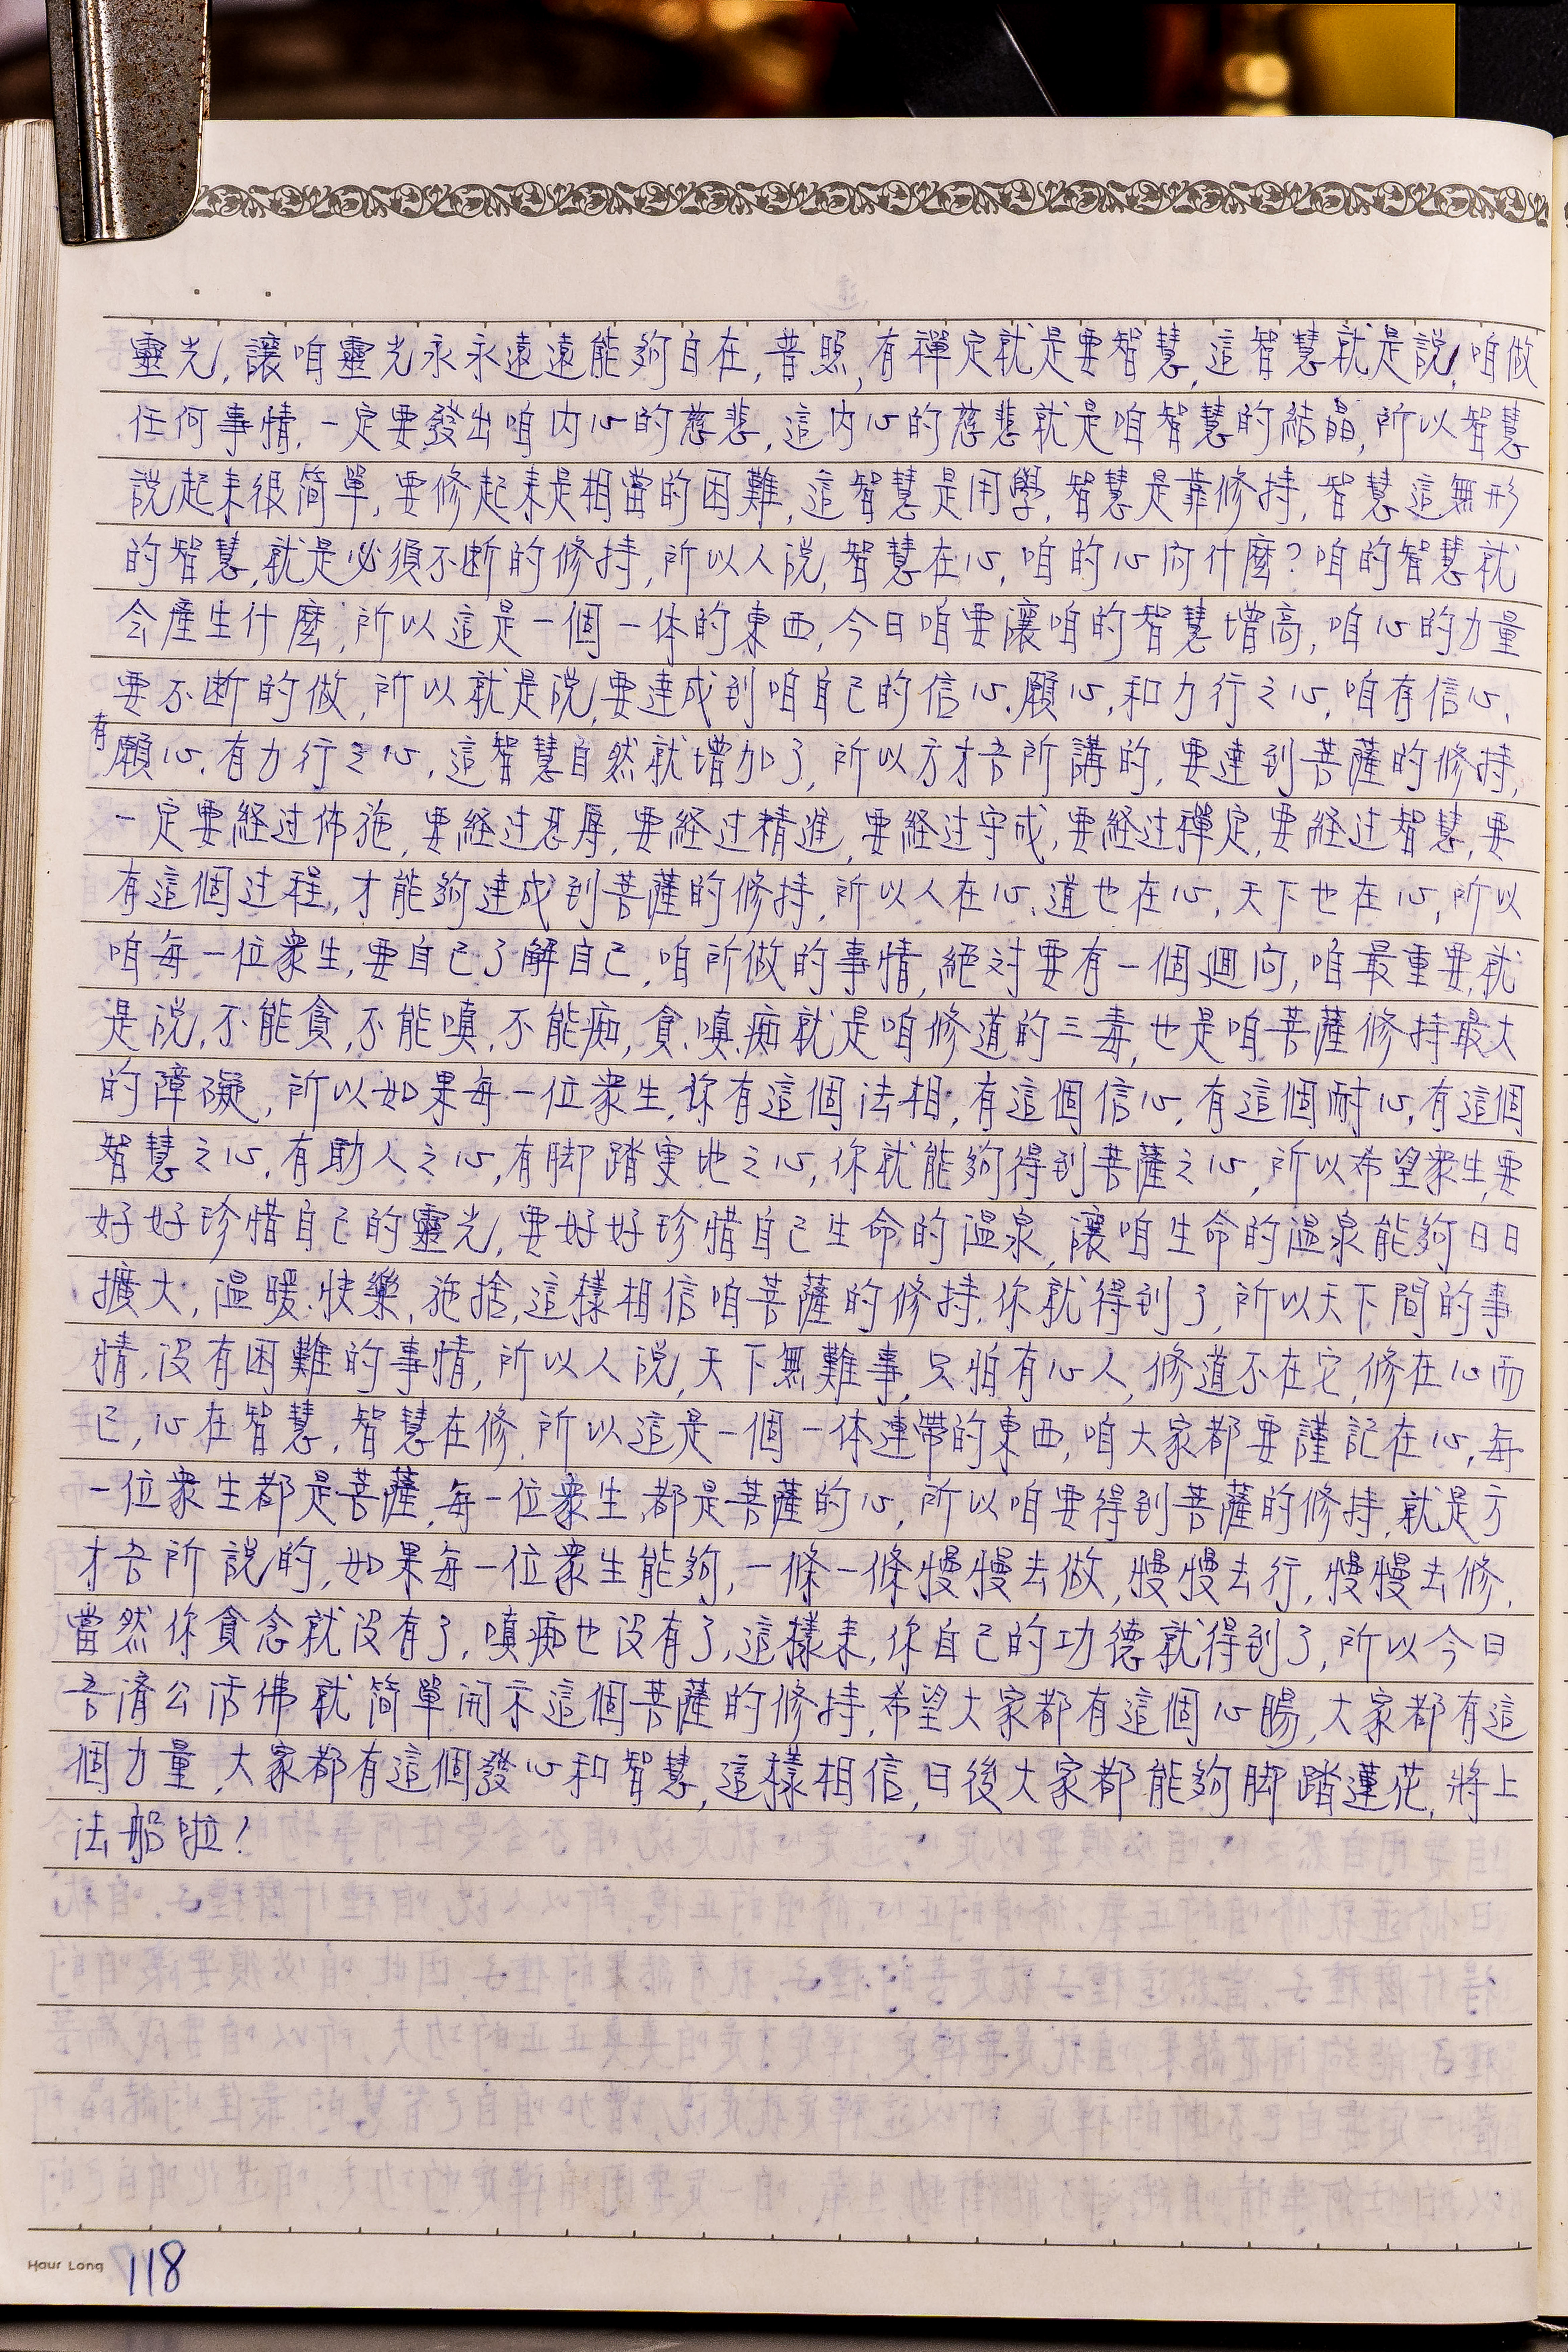 靈光,讓咱靈光永永遠遠能夠自在,普照,有禪定就是要智慧,這智慧就是說,咱做
任何事情,一定要發出咱內心的慈悲,這內心的慈悲就是咱智慧的結晶,所以智慧
說起來很简單,要修起來是相當的困難,這智慧是用學,智慧是靠修持,智慧這無形
的智慧,就是必須不断的修持,所以人說,智慧在心,咱的心向什麼?咱的智慧就
会產生什麼,所以這是一個一体的東西,今日咱要讓咱的智慧增高,咱心的力量
要不断的做,所以就是說,要達成到咱自己的信心.願心,和力行之心,咱有信心,
有願心,有力行之心,這智慧自然就增加了,所以方才吾所講的,要達到菩薩的修持,
一定要経过佈施,要経过忍辱,要経过精進,要経过守戒,要経过禪定,要経过智慧,要
有這個过程,才能夠達成到菩薩的修持,所以人在心,道也在心,天下也在心,所以
咱每一位衆生,要自己了解自己,咱所做的事情,絕对要有一個迴向,咱最重要,就
是說,不能貪,不能嗔,不能痴,貪.嗔.痴就是咱修道的三毒,也是咱菩薩修持最大
的障礙,所以如果每一位衆生,你有這個法相,有這個信心,有這個耐心,有這個
智慧之心,有助人之心,有脚踏实地之心,你就能夠得到菩薩之心,所以希望衆生,要
好好珍惜自己的靈光,要好好珍惜自己生命的溫泉,讓咱生命的溫泉能夠日日
擴大,溫暖.快樂,施捨,這樣相信咱菩薩的修持,你就得到了,所以天下間的事
情,沒有困難的事情,所以人說,天下無難事,只怕有心人,修道不在它,修在心而
已,心在智慧,智慧在修,所以這是一個一体連帶的東西,咱大家都要謹記在心,每
一位衆生都是菩薩,每一位衆生,都是菩薩的心,所以咱要得到菩薩的修持,就是方
才吾所說的,如果每一位衆生能夠,一條一條慢慢去做,慢慢去行,慢慢去修,
當然你貪念就沒有了,嗔痴也沒有了,這樣來,你自己的功德就得到了,所以今日
吾濟公活佛就简單開示這個菩薩的修持,希望大家都有這個心腸,大家都有這
個力量,大家都有這個發心和智慧,這樣相信,日後大家都能夠脚踏蓮花,將上
法船啦!
Haur Long 118